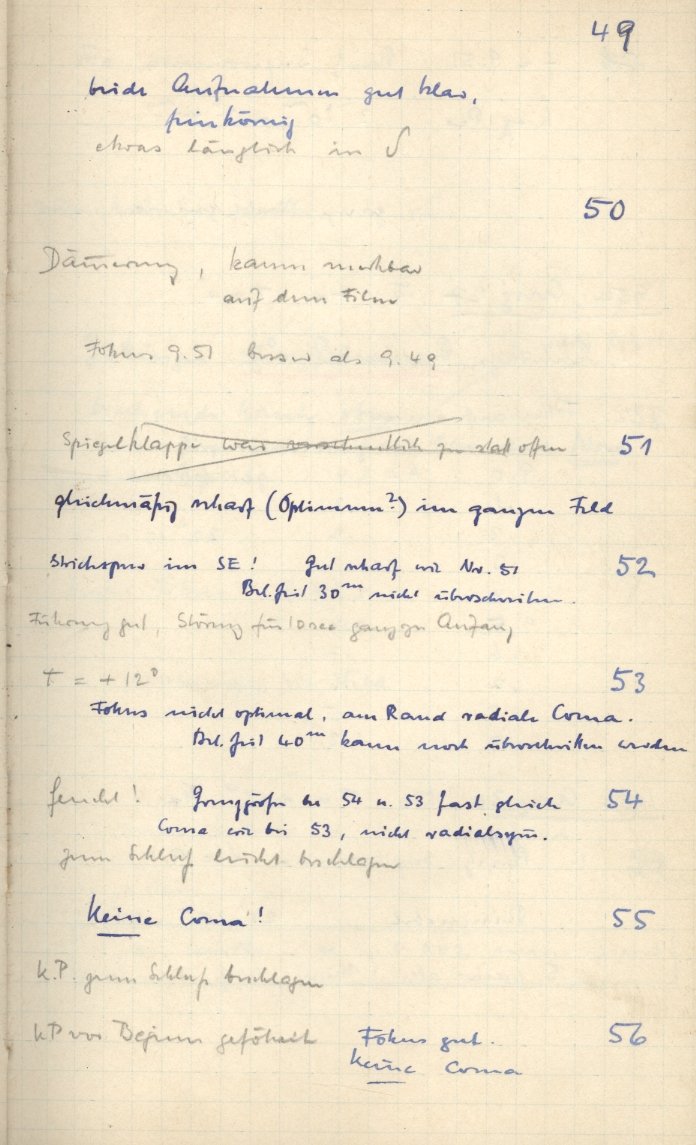 49
beide Aufnahmen gut klar,
feinkörnig
etwas länglich in δ
50
Dämmerung, kaum merkbar
auf dem Film
Fokus 9.51 besser als 9.49
Spiegelklappe war versehentlich zu statt offen 51
gleichmäßig scharf (Optimum?) im ganzen Feld
Strichspur im SE! Gut scharf wie Nr. 51 52
Bel.zeit 30ᵐ nicht überschreiten.
Führung gut, Störung für 10 sec ganz zu Anfang
T = +12° 53
Fokus nicht optimal, am Rand radiale Coma.
Bel.zeit 40ᵐ kann noch überschritten werden
feucht! Grenzgröße bei 54 u. 53 fast gleich 54
Coma wie bei 53, nicht radialsym.
zum Schluß leicht beschlagen
Keine Coma! 55
K.P. zum Schluß beschlagen
KP vor Beginn geföhnt Fokus gut. 56
Keine Coma